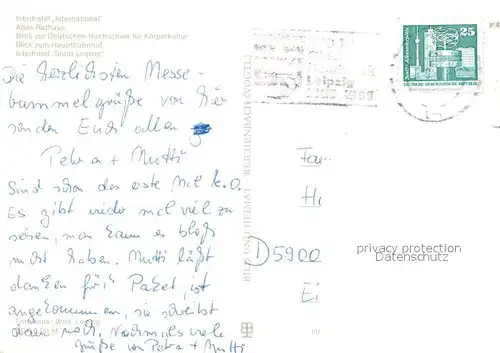 Interhotel „International"
Altes Rathaus
Blick zur Deutschen Hochschule für Körperkultur
Blick zum Hauptbahnhof
Interhotel „Stadt Leipzig"
25
Die herzlichsten Messe-
bummelgrüße von hier
senden Euch allen
Petra + Mutti
Sind schon das erste Mal k.o.
Es gibt wieder mal viel zu
sehen, man kann es bloß
nicht haben. Mutti läßt
danken für's Paket, ist
angekommen, sie schreibt
dann noch. Nochmals viele
Grüße von Petra + Mutti
BILD UND HEIMAT · REICHENBACH (VOGTL)
Fam
Hi
5900
Ei
privacy protection
Datenschutz